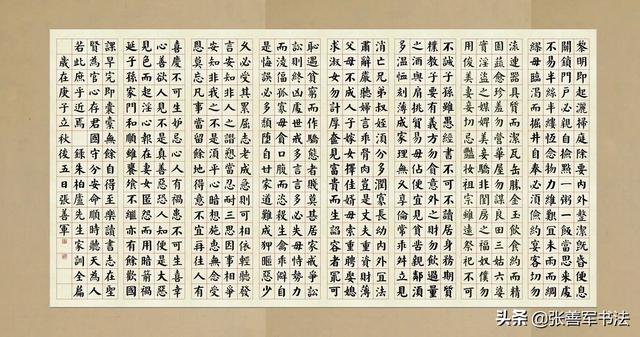 黎明即起灑掃庭除要內外整潔既昏便息
關鎖門戶必親自檢點一粥一飯當思來處
不易半絲半縷恆念物力維艱宜未雨而綢
繆毋臨渴而掘井自奉必須儉約宴客切勿
流連器具質而潔瓦缶勝金玉飲食約而精
園蔬愈珍羞勿營華屋勿謀良田三姑六婆
實淫盜之媒婢美妾嬌非閨房之福奴僕勿
用俊美妻妾切忌豔妝祖宗雖遠祭祀不可
不誠子孫雖愚經書不可不讀居身務期質
樸教子要有義方勿貪意外之財勿飲過量
之酒與肩挑貿易毋佔便宜見貧苦親鄰須
多溫恤刻薄成家理無久享倫常乖舛立見
消亡兄弟叔姪須分多潤寡長幼內外宜法
肅辭嚴聽婦言乖骨肉豈是丈夫重資財薄
父母不成人子嫁女擇佳婿毋索重聘娶媳
求淑女勿計厚奩見富貴而生諂容者最可
恥遇貧窮而作驕態者賤莫甚居家戒爭訟
訟則終凶處世戒多言言多必失毋恃勢力
而淩逼孤寡毋貪口腹而恣殺生禽乖僻自
是悔誤必多頹惰自甘家道難成狎暱惡少
久必受其累屈志老成急則可相依輕聽發
言安知非人之譖愬當忍耐三思因事相爭
安知非我之不是須平心暗想施惠無念受
恩莫忘凡事當留餘地得意不宜再往人有
喜慶不可生妒忌心人有禍患不可生喜幸
心善欲人見不是真善惡恐人知便是大惡
見色而起淫心報在妻女匿怨而用暗箭禍
延子孫家門和順雖饔飧不繼亦有餘歡國
課早完即囊橐無餘自得至樂讀書志在聖
賢為官心存君國守分安命順時聽天為人
若此庶乎近焉 錄朱柏廬先生家訓全篇
歲在庚子立秋後五日張善軍
头条 @张善军书法